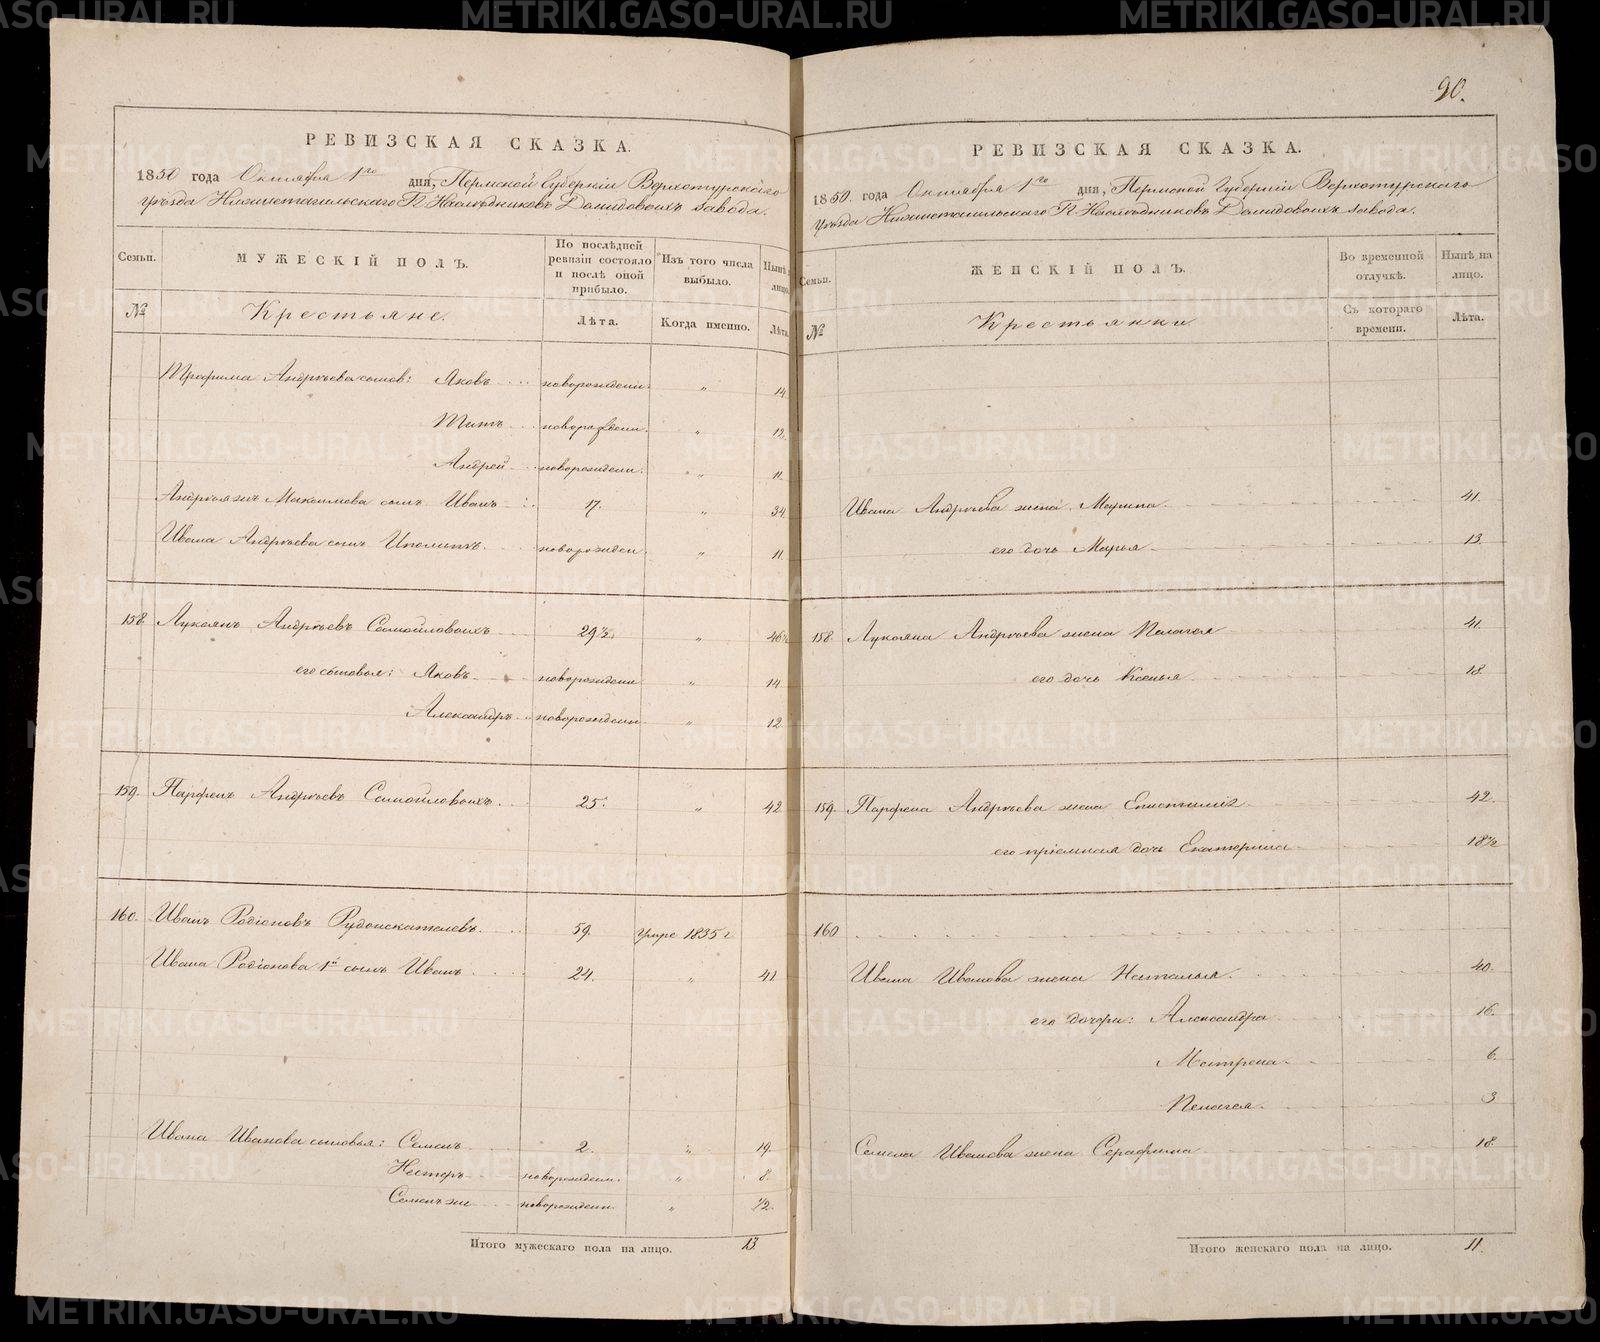 90.
РЕВИЗСКАЯ СКАЗКА.
1850 года Октября 1го дня, Пермской Губерніи Верхотурскаго
уѣзда Нижнетагильскаго Гг. Наслѣдниковъ Демидовыхъ завода.
Семьи. МУЖЕСКІЙ ПОЛЪ. По послѣдней ревизіи состояло и послѣ оной прибыло. Изъ того числа выбыло. Нынѣ на лицо.
№ Крестьяне. Лѣта. Когда именно. Лѣта.
Трафима Андрѣева сынов: Яковъ новорожден. „ 14.
Титъ новорожден. „ 12.
Андрей новорожден. „ 11.
Андрѣянъ Максимова сынъ Иванъ 17. „ 34.
Ивана Андрѣева сынъ Иполитъ новорожден. „ 11.
158. Лукоянъ Андрѣевъ Самойловыхъ 29½ „ 46½
его сыновья: Яковъ новорожден. „ 14
Александръ новорожден. „ 12
159. Парфенъ Андрѣевъ Самойловыхъ. 25. „ 42
160. Иванъ Родіоновъ Рудоискателевъ. 59. умре 1835 г.
Ивана Родіонова 1й сынъ Иванъ 24. „ 41
Ивана Иванова сыновья: Семенъ 2. „ 19.
Нестеръ новорожден. „ 8.
Семенъ же новорожден. „ ½.
Итого мужескаго пола на лицо. 13.
РЕВИЗСКАЯ СКАЗКА.
1850 года Октября 1го дня, Пермской Губерніи Верхотурскаго
уѣзда Нижнетагильскаго Гг. Наслѣдниковъ Демидовыхъ завода.
Семьи. ЖЕНСКІЙ ПОЛЪ. Во временной отлучкѣ. Нынѣ на лицо.
№ Крестьянки Съ котораго времени. Лѣта.
Ивана Андрѣева жена Марина 41.
его дочь Марья 13.
158. Лукояна Андрѣева жена Пелагея 41.
его дочь Ксенья 18.
159. Парфена Андрѣева жена Епистимія 42.
его пріемная дочь Екатерина 18½
160
Ивана Иванова жена Наталья 40.
его дочери: Александра 16.
Матрена 6.
Пелагея. 3
Семена Иванова жена Серафима 18.
Итого женскаго пола на лицо. 11.
METRIKI.GASO-URAL.RU